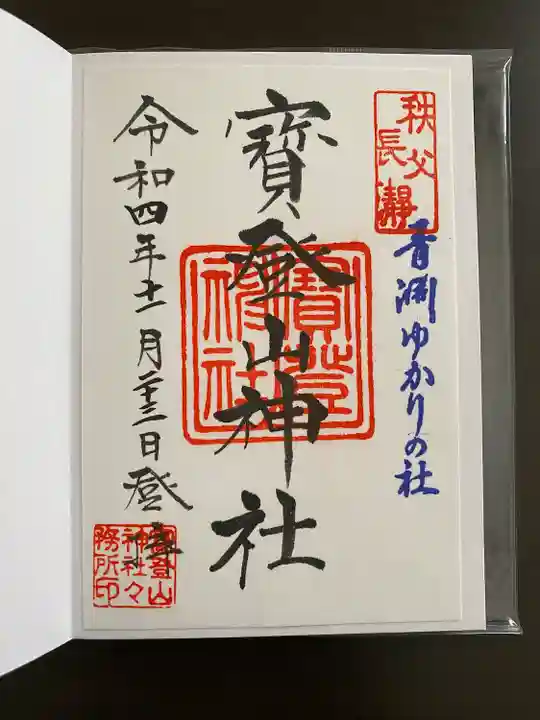 秩父
長瀞
青淵ゆかりの社
寳登山神社
寳登
神社
令和四年十一月廿三日登拝
寳登山
神社々
務所印